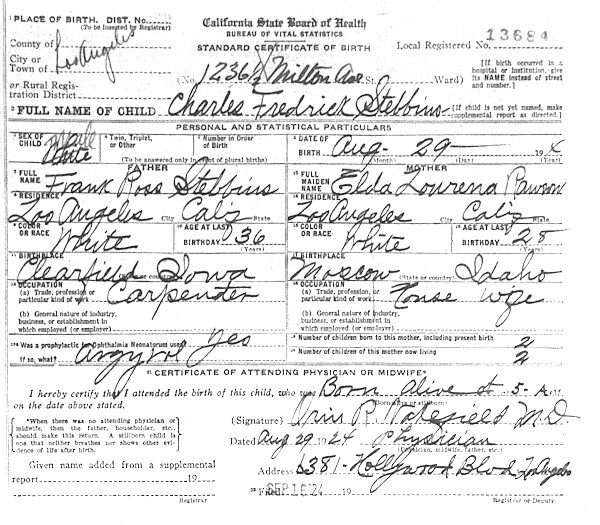 1 PLACE OF BIRTH. DIST. No.
(To be inserted by Registrar)
California State Board of Health
BUREAU OF VITAL STATISTICS
STANDARD CERTIFICATE OF BIRTH
Local Registered No. 13684
County of
City or
Town of Los Angeles
or Rural Registration District
(No. 1236½ Milton Ave St. Ward)
[If birth occurred in a hospital or institution, give its NAME instead of street and number.]
2 FULL NAME OF CHILD Charles Fredrick Stebbins
[If child is not yet named, make supplemental report as directed.]
PERSONAL AND STATISTICAL PARTICULARS
3 SEX OF CHILD Male
White
4 Twin, Triplet, or Other
5 Number in Order of Birth
(To be answered only in event of plural births)
6 DATE OF BIRTH Aug - 29 19
(Month) (Day) (Year)
FATHER
FULL NAME Frank Ross Stebbins
RESIDENCE Los Angeles City Calif State
COLOR OR RACE White
AGE AT LAST BIRTHDAY 36 (Years)
BIRTHPLACE (State or country) Clearfield Iowa
OCCUPATION
(a) Trade, profession or particular kind of work Carpenter
(b) General nature of industry, business, or establishment in which employed (or employer)
MOTHER
FULL MAIDEN NAME Elda Lourena Rawson
RESIDENCE Los Angeles City Calif State
COLOR OR RACE White
AGE AT LAST BIRTHDAY 28 (Years)
BIRTHPLACE (State or country) Moscow Idaho
OCCUPATION
(a) Trade, profession or particular kind of work House wife
(b) General nature of industry, business or establishment in which employed (or employer)
Was a prophylactic for Ophthalmia Neonatorum used? Yes
If so, what? Argyrol
Number of children born to this mother, including present birth 2
Number of children of this mother now living 2
CERTIFICATE OF ATTENDING PHYSICIAN OR MIDWIFE*
I hereby certify that I attended the birth of this child, who was Born alive at 5- A M.
on the date above stated.
(Born alive or stillborn)
*When there was no attending physician or midwife, then the father, householder, etc. should make this return. A stillborn child is one that neither breathes nor shows other evidence of life after birth.
(Signature) M.D.
Dated Aug 29 1924 Physician
(Physician, midwife, father, etc.)
Given name added from a supplemental
report 19
Registrar
Address 6381 - Hollywood Blvd Los Angeles
Filed SEP 16 '24 19
Registrar or Deputy